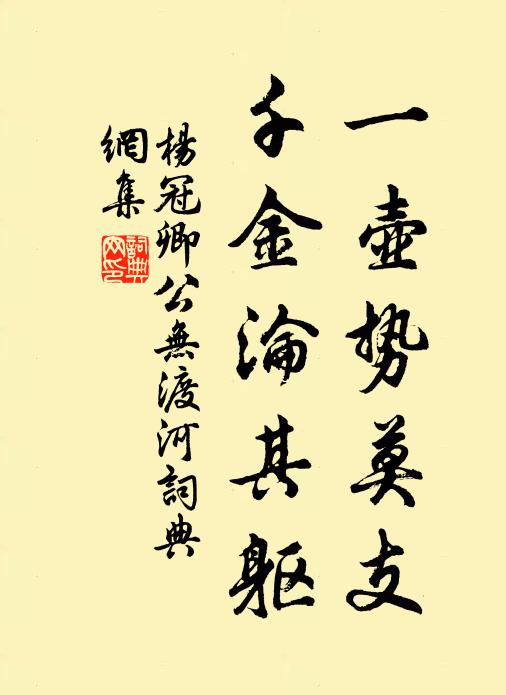 一壺势莫支
千金淪其躯
楊冠卿公無渡河詞典
網集
詞典網印